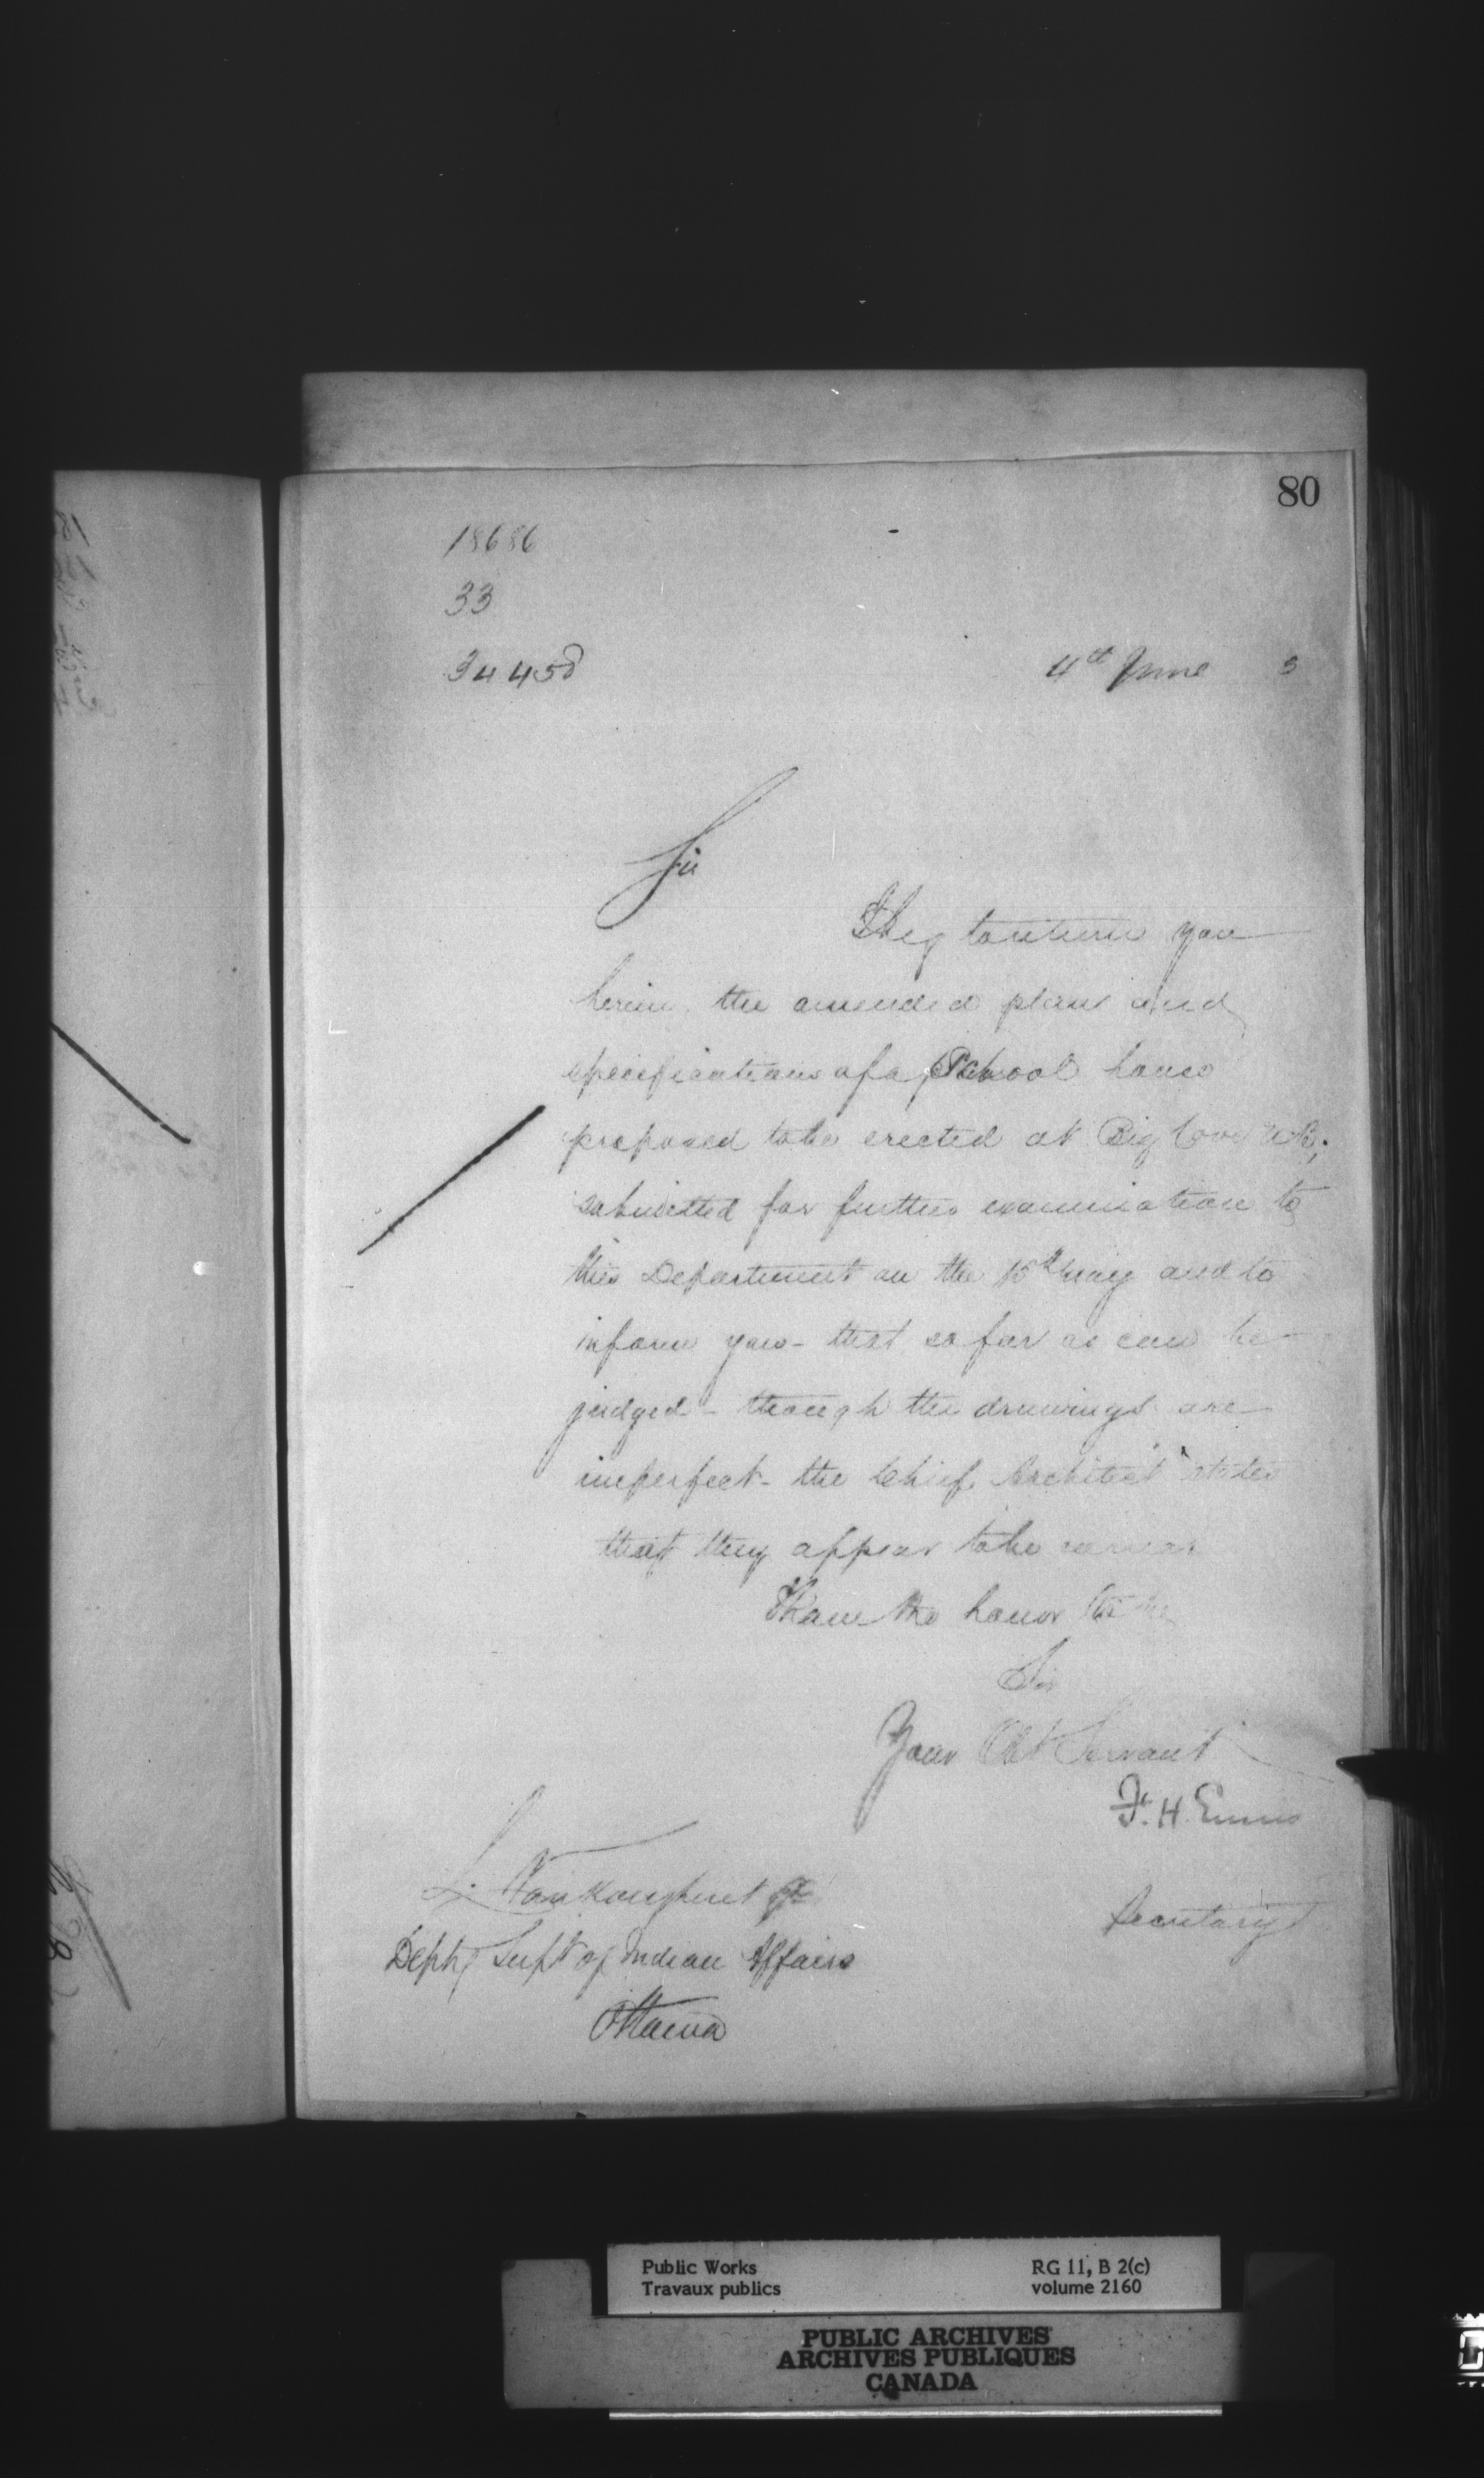 80
18686
33
34458
4th June 3
Sir
I beg to return you
herein the amended plans and
specifications of a School house
proposed to be erected at Big Cove N.B.;
submitted for further examination to
this Department on the 15th May and to
inform you - that so far as can be
judged - though the drawings are
imperfect - the Chief Architect states
that they appear to be correct
I have the honor to be
Sir
Your Obt Servant
F. H. Ennis
Secretary
L. Vankoughnet
Depty Supt of Indian Affairs
Ottawa
Public Works
Travaux publics
RG 11, B 2(c)
volume 2160
PUBLIC ARCHIVES
ARCHIVES PUBLIQUES
CANADA